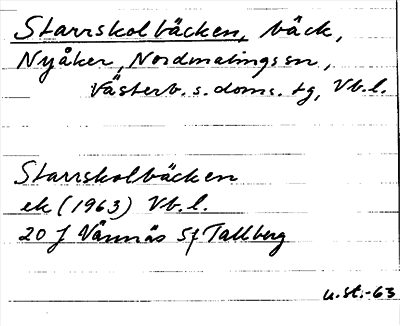 Starrskolbäcken, bäck,
Nyåker, Nordmalings sn,
Västerb. s. doms. tg, Vb. l.
Starrskolbäcken
ek (1963) Vb. l.
20 J Vännäs Sf Tallberg
u.st.-63